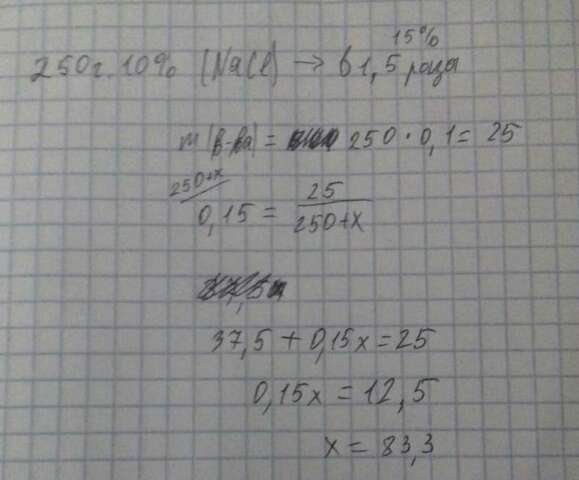 15%
250г. 10% (NaCl) → в 1,5 раза
m (в-ва) = 250 · 0,1 = 25
250+x
0,15 = 25 / 250+x
37,5 + 0,15x = 25
0,15x = 12,5
x = 83,3